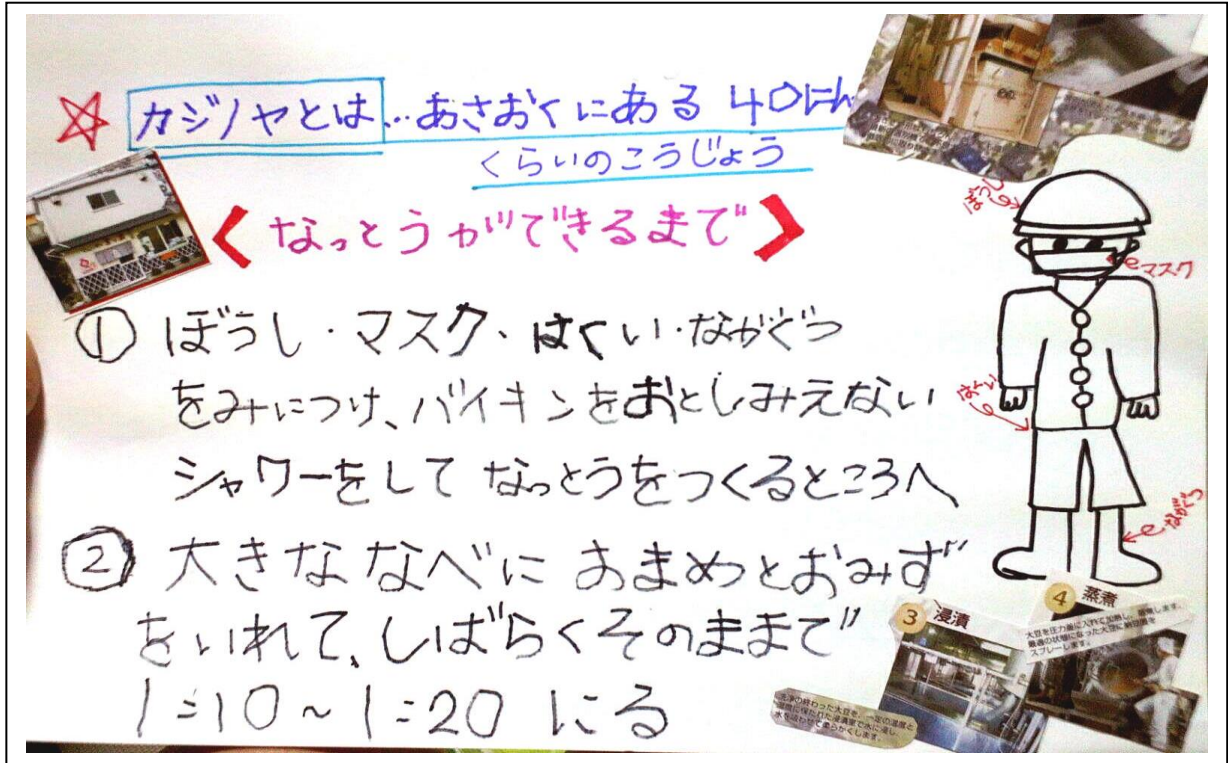 ☆ カジノヤとは…あさおくにある 40にん
くらいのこうじょう
<なっとうができるまで>
① ぼうし・マスク・はくい・ながぐつ
をみにつけ、バイキンをおとしみえない
シャワーをして なっとうをつくるところへ
② 大きななべに おまめとおみず
をいれて、しばらくそのままで
1:10~1:20 にる
ぼうし
マスク
はくい
ながぐつ
3 浸漬
洗浄の終わった大豆を、一定の温度と
4 蒸煮
大豆を圧力釜に入れて加熱し、蒸煮します。
最適の状態になった大豆に納豆菌を
スプレーします。